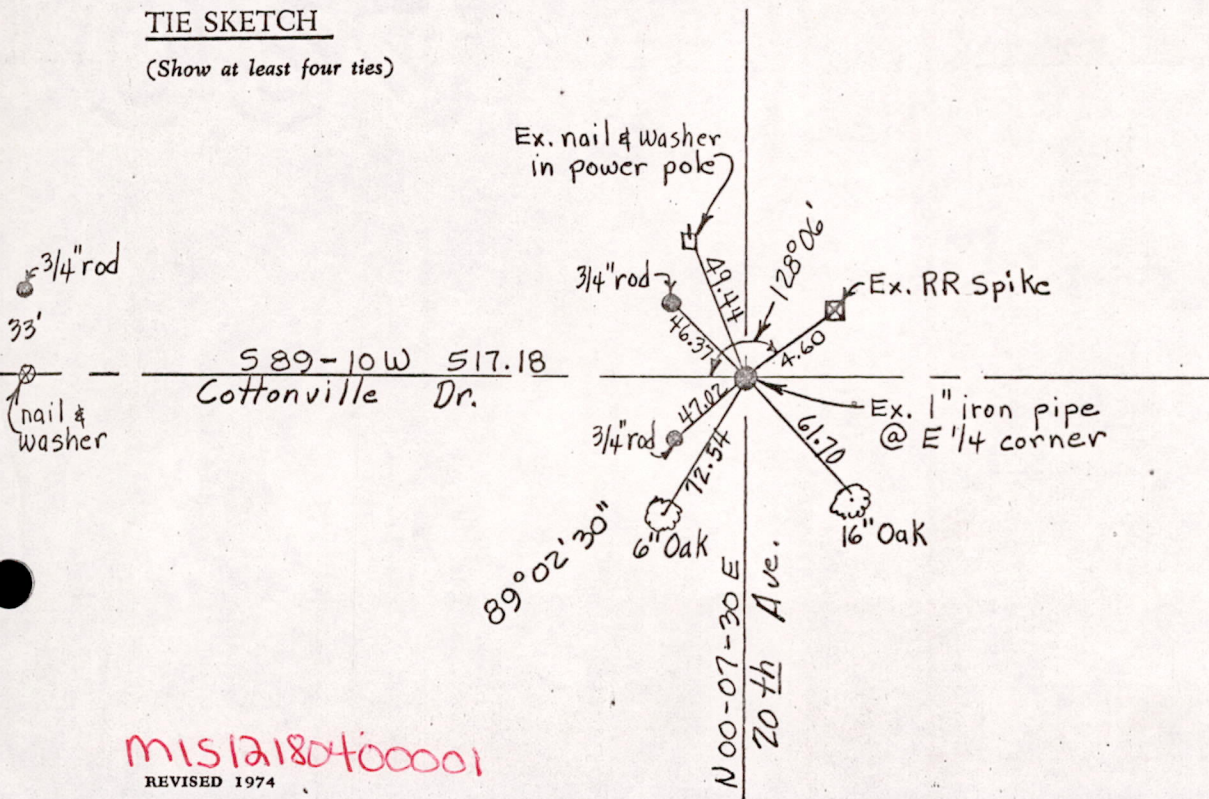 TIE SKETCH
(Show at least four ties)
Ex. nail & washer
in power pole
3/4" rod
33'
nail &
washer
S 89-10 W 517.18
Cottonville Dr.
3/4" rod
49.44
128°06'
46.37
4.60
Ex. RR Spike
47.02
3/4" rod
72.54
61.70
Ex. 1" iron pipe
@ E 1/4 corner
6" Oak
16" Oak
89°02'30"
N 00-07-30 E
20th Ave.
M1S12180400001
REVISED 1974